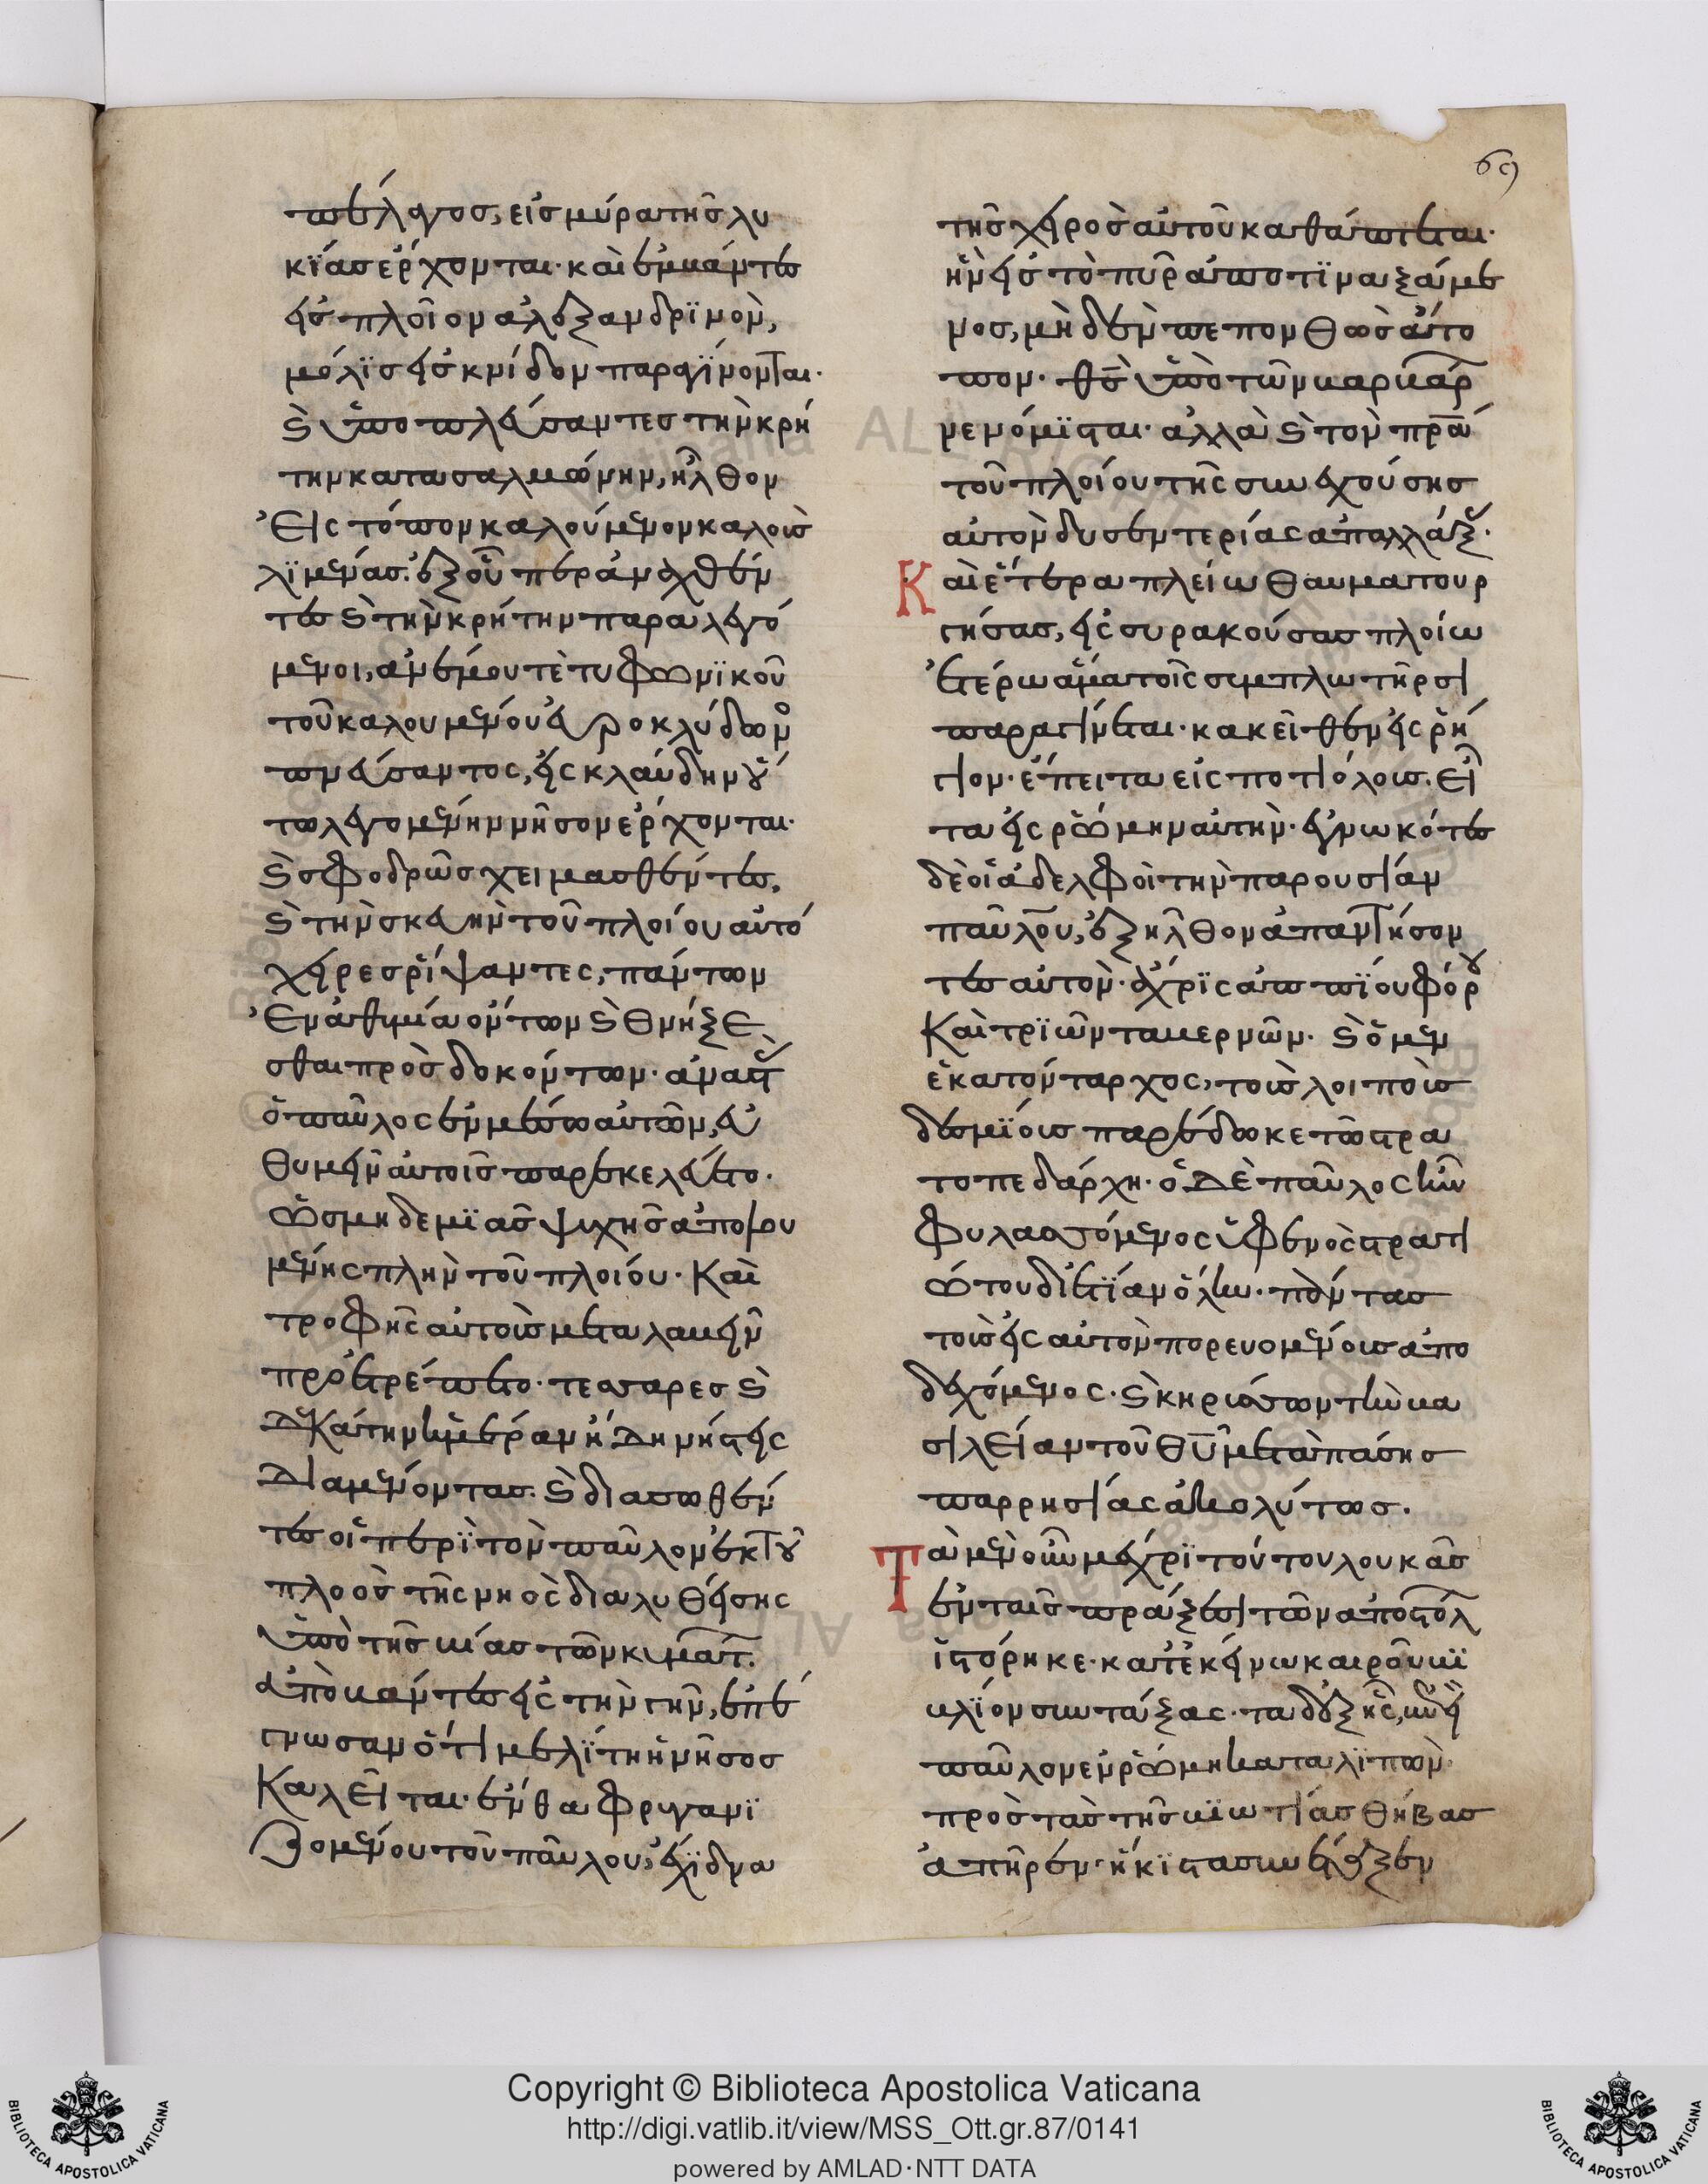 69
πέλαγος, εἰς μύρα τῆς λυ
κΐας ἔρχονται· καὶ ἐμβάντες
εἰς πλοῖον ἀλεξανδρϊνὸν,
μόλϊς εἰς κνίδον παραγΐνονται·
καὶ ὑποπλεύσαντες τὴν κρή
την κατα σαλμώνην, ἦλθον
εἰς τόπον καλούμενον καλοὺς
λϊμένας· ἐξ οὗ περαναχθέν
τες καὶ τὴν κρήτην παραλεγό
μενοι, ἀνέμου τὲ τυφωνϊκοῦ
τοῦ καλουμένου εὐροκλύδων
πνεύσαντος, εἰς κλαύδην οὕ
τω λεγομένην νῆσον ἔρχονται·
καὶ σφοδρῶς χειμασθέντες,
καὶ τὴν σκευὴν τοῦ πλοίου αὐτό
χειρες ῥΐψαντες, πάντων
ἐν ἀθυμία ὄντων καὶ θνήξε
σθαι προσδοκόντων· ἀναστὰς
ὁ παῦλος ἐν μέσω αὐτῶν, εὐ
θυμεῖν αὐτοῖς παρεκελεύετο·
ὡς μηδεμϊᾶς ψυχῆς ἀπολου
μένης πλὴν τοῦ πλοίου· Καὶ
τροφῆς αὐτοὺς μεταλαβεῖν
προετρέπετο· τεσσαρες καὶ
δεκάτην ἡμέραν ἤδη νήστεις
διαμένοντας. καὶ διασωθέν
τες οἱ περὶ τὸν παῦλον ἐκ τοῦ
πλοὸς τῆς νηὸς διαλυθείσης
ὑπὸ τῆς βίας τῶν κυμάτ.
ἀποβάντες εἰς τὴν γῆν, ἐπέ
γνωσαν ὅτι μελϊτη ἡ νῆσος
Καλεῖται· ἔνθα φρυγανϊ
ζομένου τοῦ παύλου, ἔχϊδνα
τῆς χειρὸς αὐτοῦ καθάπτεται·
ἣν εἰς τὸ πῦρ ἀποτϊναξάμε
νος, μηδὲν πεπονθὼς ἄτο
πον· θς ὑπὸ τῶν βαρβάρ
νενόμϊσται· ἀλλὰ καὶ τὸν πρα
τοῦ πλοίου τῆς συνεχούσης
αὐτὸν δυσεντερίας ἀπαλλάξ·
Καὶ ἕτερα πλείω θαυματουρ
γήσας, εἰς συρακούσας πλοίω
ἑτέρω ἅμα τοῖς συμπλωτῆρσι
παραγίνεται· κακεῖθεν εἰς ῥή
γιον· ἔπειτα εἰς ποτιόλους. εἶ
τα εἰς ῥώμην αὐτὴν· ἐγνωκότες
δὲ οἱ ἀδελφοὶ τὴν παρουσίαν
παύλου, ἐξῆλθον ἀπαντήσον
τες αὐτὸν· ἄχρϊς ἀππϊου φόρου
Καὶ τρϊῶν ταβερνῶν· καὶ ὁ μὲν
ἑκατόνταρχος, τοὺς λοιποὺς
δεσμϊους παρέδωκε τῶ στρα
τοπεδάρχη· ὁ δὲ παῦλος ἦν
φυλαττόμενος ὑφ ἑνὸς στρατι
ώτου διετΐαν ὅλην· πάντας
τοὺς εἰς αὐτὸν πορευομένους ἀπο
δεχόμενος· καὶ κηρύσσων τὴν βα
σιλείαν τοῦ θῦ μετὰ πάσης
παρρησίας ἀκολύτως.
Τὰ μὲν οὖν μέχρϊ τούτου λουκᾶς
ἐν ταῖς πράξεσι τῶν ἀποστόλ
ἱστόρηκε· κατ ἐκείνω καιροῦ βϊ
βλΐον συντάξας· τα δ ἑξῆς,
παῦλον ἐν ῥώμη καταλϊπὼν
πρὸς τὰς τῆς βϊωτίας θήβας
ἀπῆρεν·